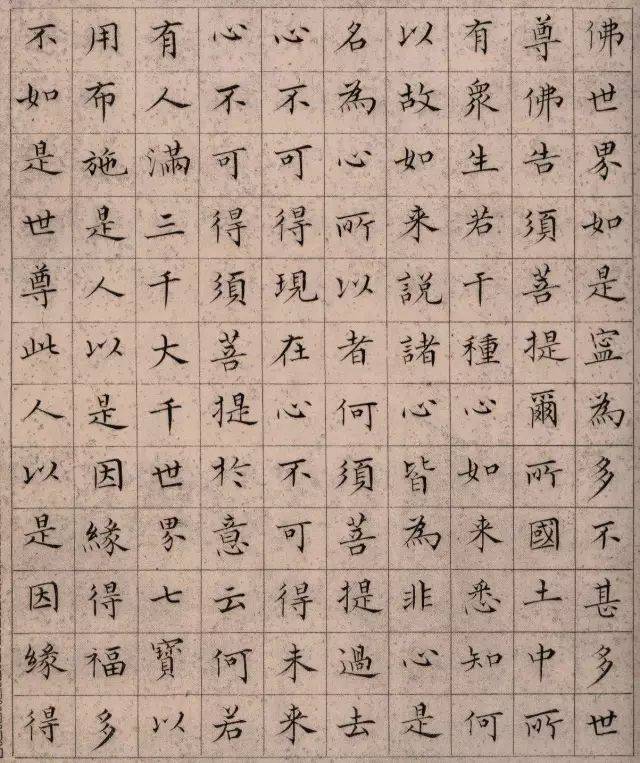 佛世界如是寍為多不甚多世
尊佛告須菩提爾所國土中所
有衆生若干種心如来悉知何
以故如来説諸心皆為非心是
名為心所以者何須菩提過去
心不可得現在心不可得未来
心不可得須菩提扵意云何若
有人滿三千大千世界七寶以
用布施是人以是因緣得福多
不如是世尊此人以是因緣得